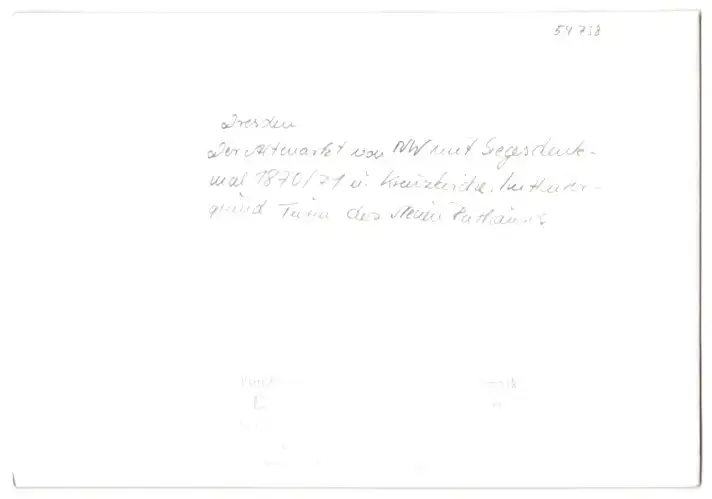 54 738
Dresden
Der Altmarkt von NW mit Siegesdenk-
mal 1870/71 u. Kreuzkirche. Im Hinter-
grund Turm des Neuen Rathauses